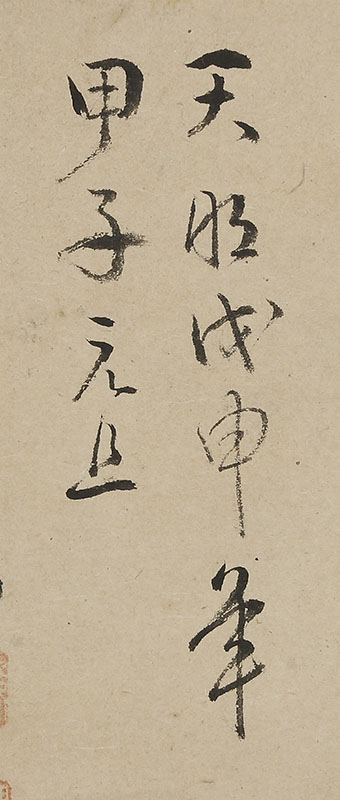 天明戊申年
甲子元旦